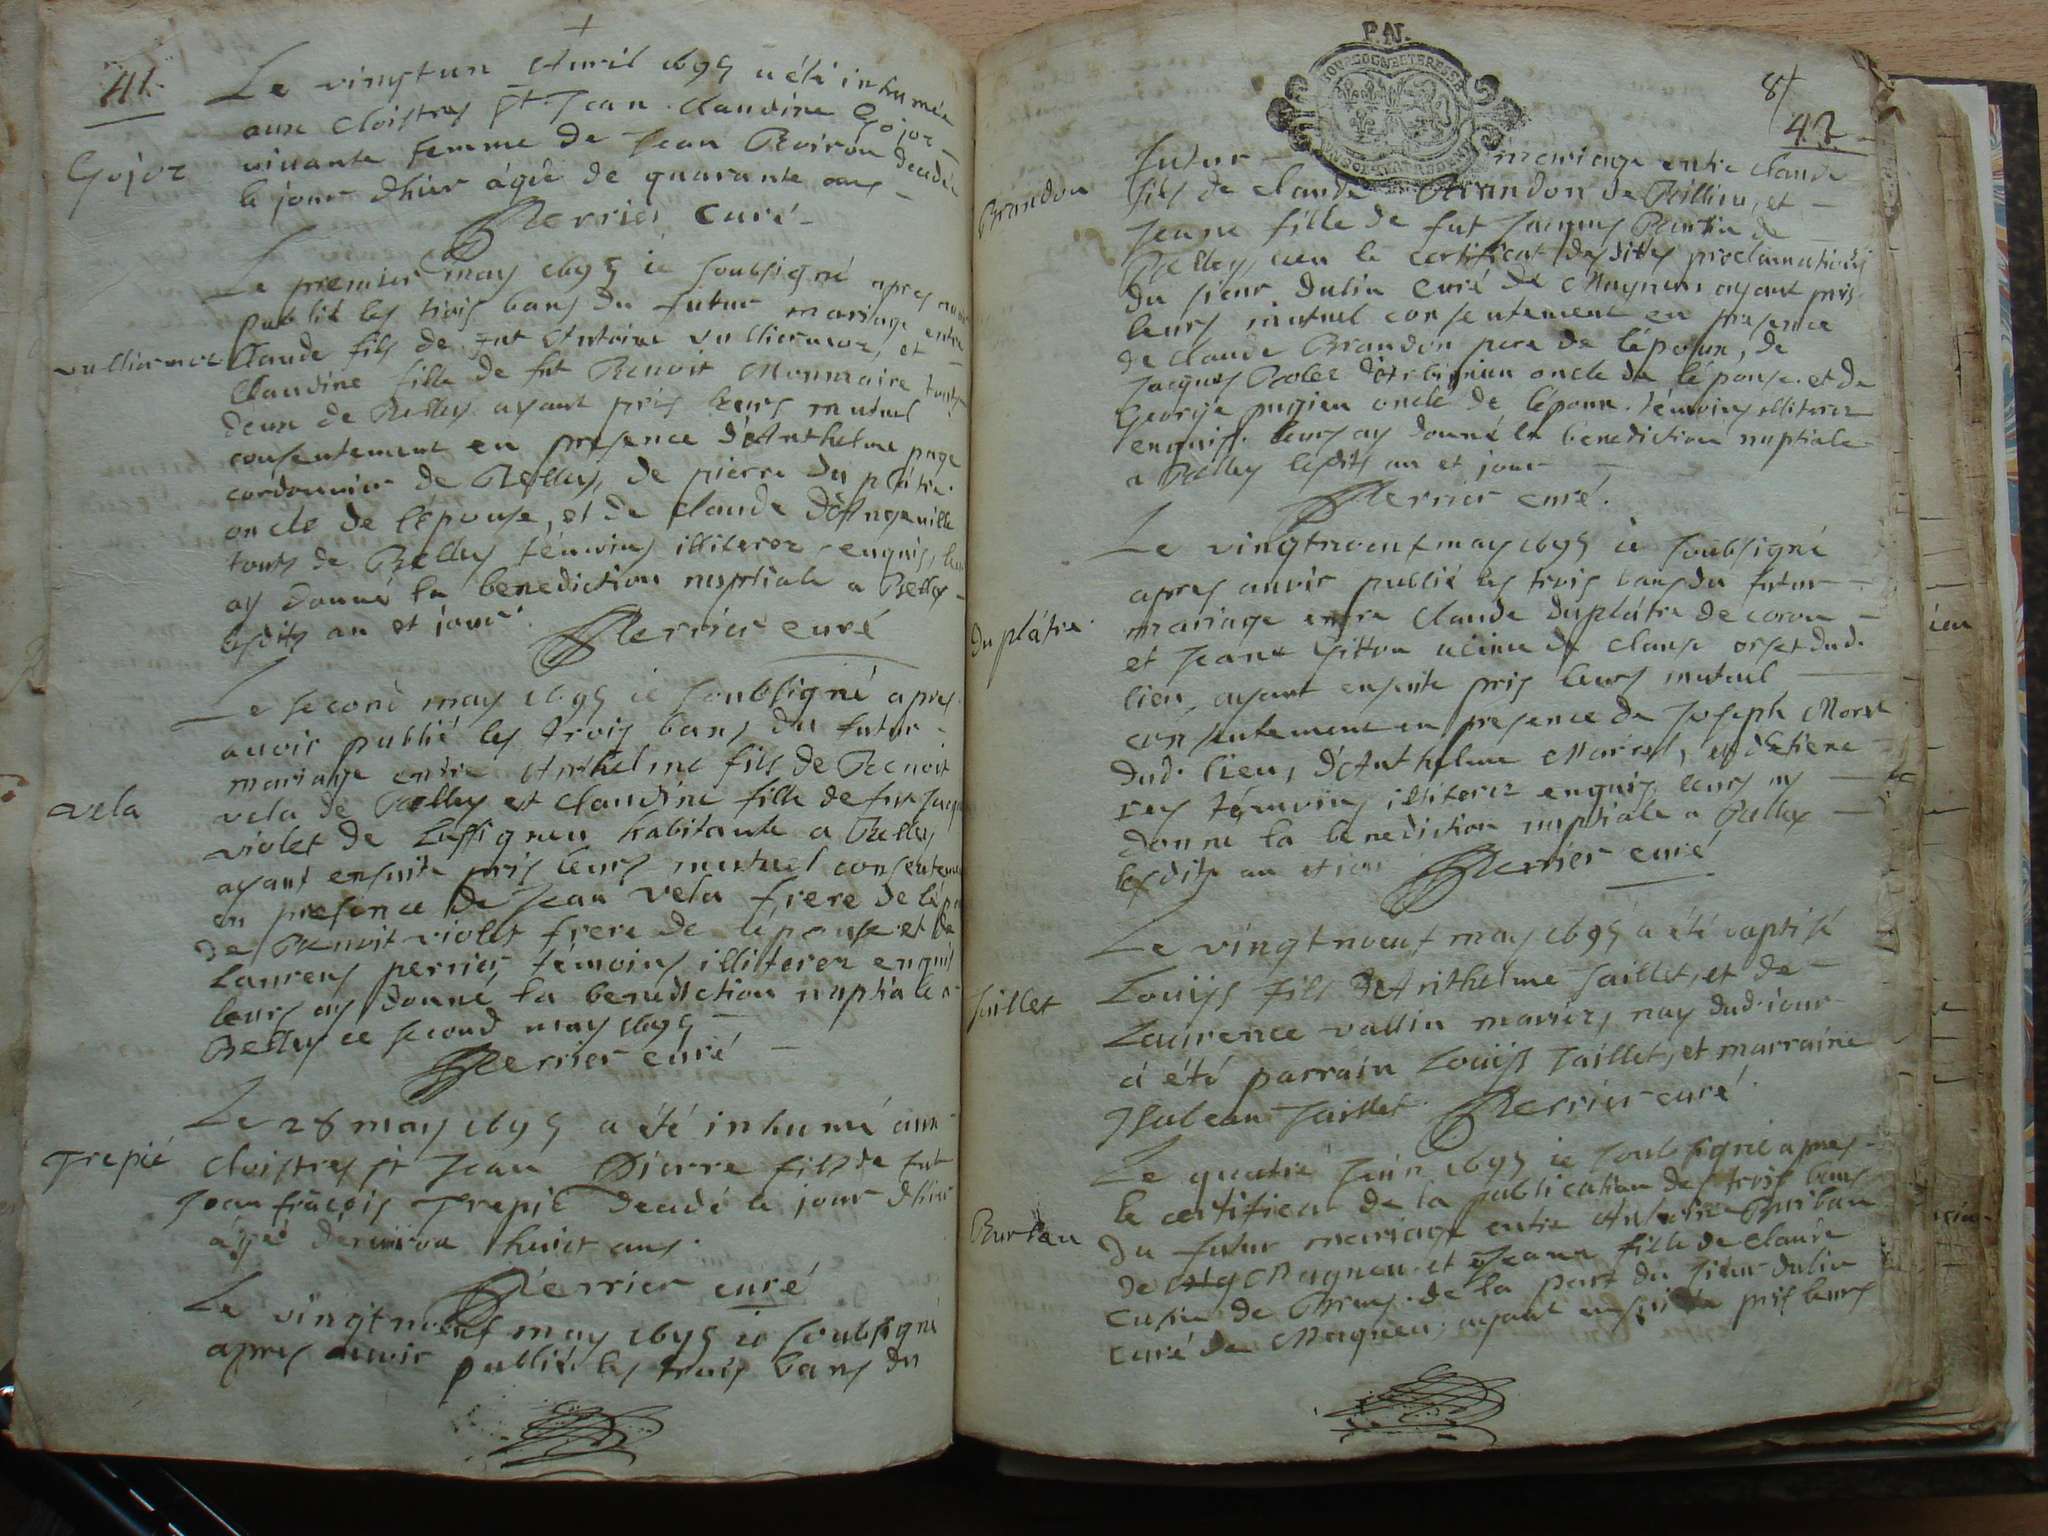 41.
Le vingt un Avril 1695 a été inhumée
aux Cloistres St Jean Claudine Gojoz
vivante femme de Jean Roirou decedée
le jour d'hier âgée de quarante ans
Gojoz
Perrier curé
Le premier may 1695 ie soubsigné apres avoir
publié les trois bans du futur mariage entre
Vulliermoz
Claude fils de fut Antoine Vulliermoz, et
Claudine fille de fut Benoit Monnaire touts
deux de Belley ayant pris leurs mutuel
consentement en presence d'Anthelme page
cordonnier de Belley, de pierre du plâtre
oncle de l'épouse, et de claude
touts de Belley témoins illiterez enquis, leurs
ay donné la benediction nuptiale a Belley
lesdits an et jour.
Perrier curé
Le second may 1695 ie soubsigné apres
avoir publié les trois bans du futur
mariage entre Anthelme fils de Benoit
vela
vela de Belley et claudine fille de fut Jaque
violet de habitante a Belley
ayant ensuite pris leurs mutuel consentement
en presence de Jean vela frere de
de Benoit violet frere de l'épouse et de
Laurens perrier témoins illiterez enquis
leurs ay donné la benediction nuptiale a
Belley ce second may 1695
Perrier curé
Le 28 may 1695 a été inhumé aux
Trepié
Cloistres st Jean Pierre fils de fut
Jean frâcois Trepié decedé le jour d'hier
âgé d'environ huict ans.
Perrier curé
Le vingt neuf may 1695 ie soubsigné
apres avoir publié les trois bans du
P.N.
8
42
futur mariage entre claude
Brandon
fils de claude Brandon de et
Jeane fille de fut Jaques de
Belley, veu le certificat desdites proclamations
du sieur Dulin curé de Magnieu ayant pris
leurs mutuel consentement en presence
de claude Brandon pere de l'époux, de
Jacques oncle de l'épouse et de
George pugieu oncle de l'époux témoins illiterez
enquis. leurs ay donné la benediction nuptiale
a Belley lesdits an et jour
Perrier curé.
Le vingt noeuf may 1695 ie soubsigné
apres avoir publié les trois bans du futur
du plâtre
mariage entre Claude duplâtre de coron
et Jeane de clause dud.
lieu, ayant ensuite pris leurs mutuel
consentement en presence de Joseph Morst
dud. lieu, d'Anthelme et d'Etiene
rey témoins illiterez enquis, leurs ay
donne la benediction nuptiale a Belley
lesdits an et jour
Perrier curé
Le vingt noeuf may 1695 a été baptisé
Louijs fils d'Anthelme Jaillet, et de
Jaillet
Laurence vallin mariez, nay dud. iour
a été parrain Louijs Jaillet, et marraine
Isabeau Jaillet. Perrier curé.
Le quatre Juin 1695 ie soubsigné apres
le certificat de la publication des trois bans
Burbau
du futur mariage entre Antoine Burbau
de Magneu et Jeane fille de claude
de de la part du sieur Dulin
curé de Magneu, ayant ensuite pris leurs